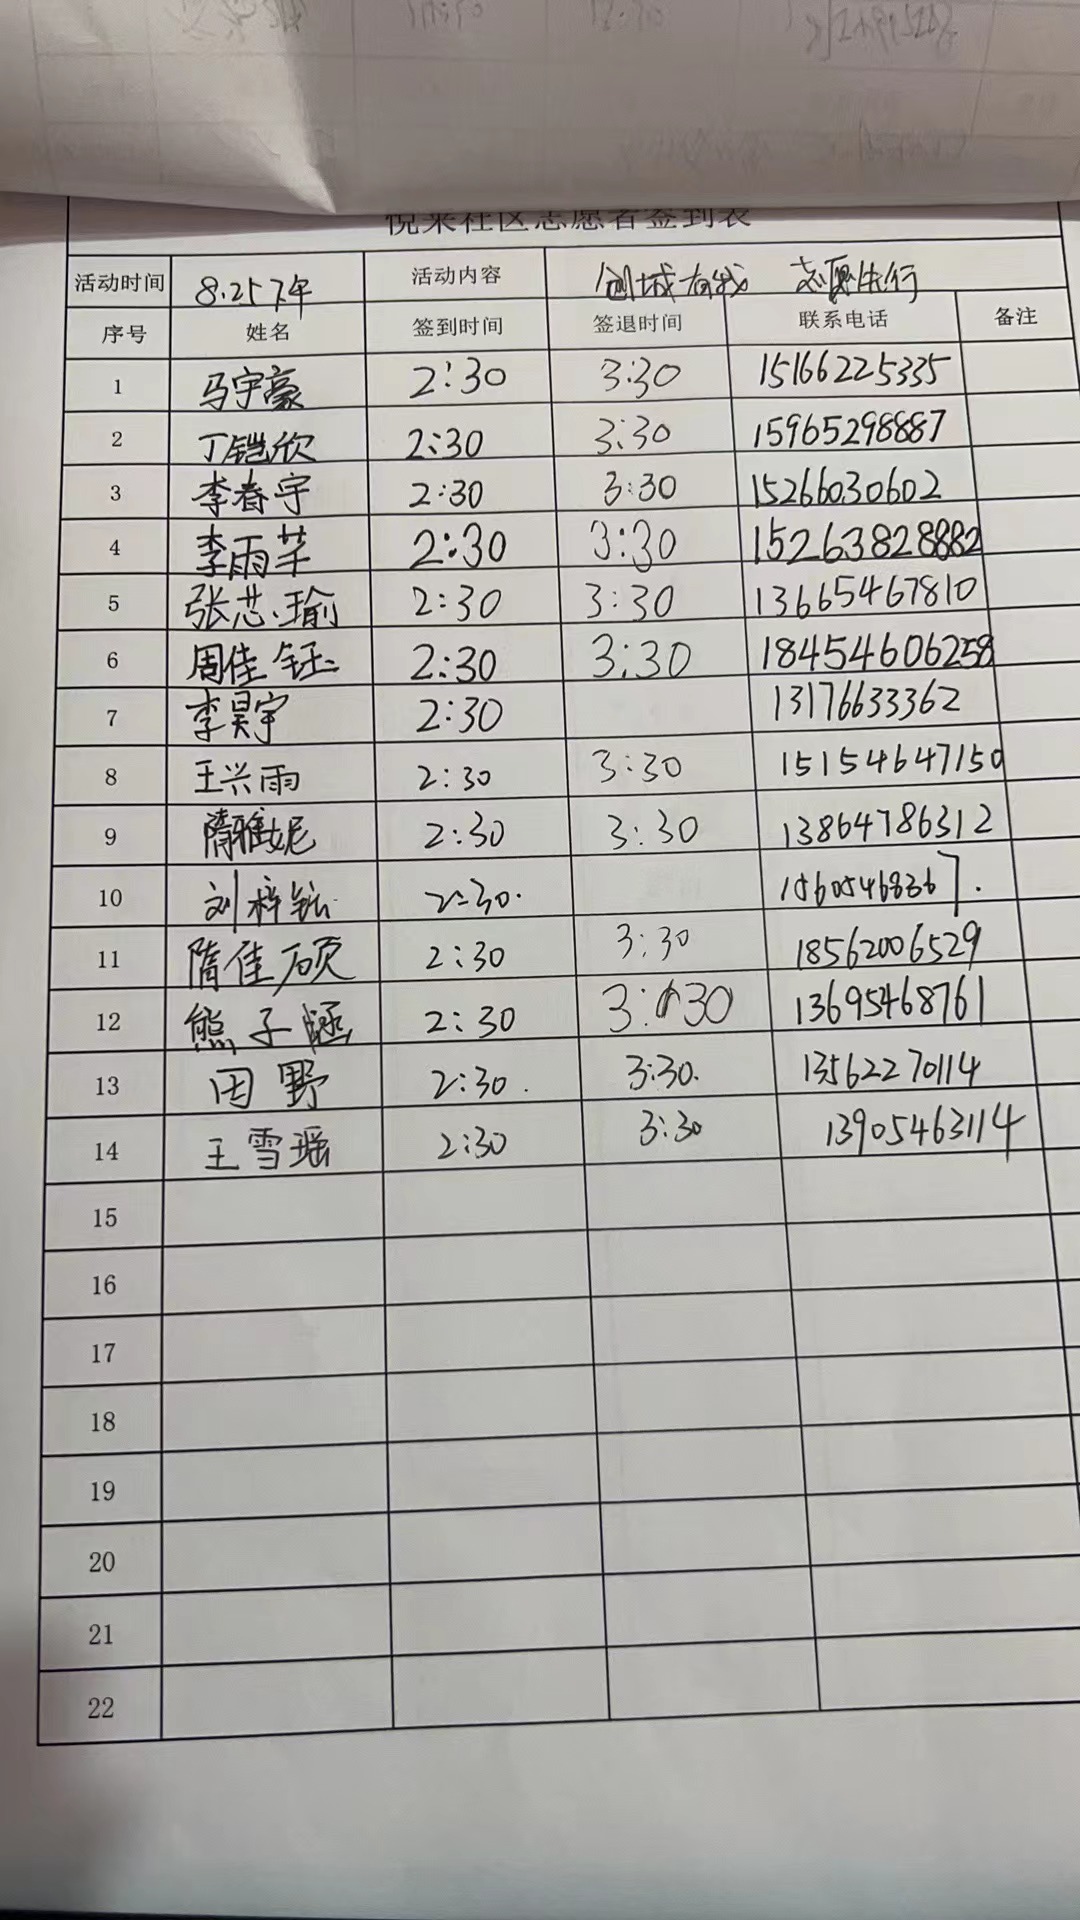 悦来社区志愿者签到表
活动时间 8.25下午 活动内容 创城有我 志愿先行
序号 姓名 签到时间 签退时间 联系电话 备注
1 马宇豪 2:30 3:30 15166225335
2 丁铠欣 2:30 3:30 15965298887
3 李春宇 2:30 3:30 15266030602
4 李雨芊 2:30 3:30 15263828882
5 张芯瑜 2:30 3:30 13665467810
6 周佳钰 2:30 3:30 18454606258
7 李昊宇 2:30 13176633362
8 王兴雨 2:30 3:30 15154647150
9 隋雅妮 2:30 3:30 13864786312
10 刘梓铉 2:30. 15605468367.
11 隋佳硕 2:30 3:30 18562006529
12 熊子涵 2:30 3:30 13695468761
13 田野 2:30. 3:30. 13562270114
14 王雪瑶 2:30 3:30 13905463114
15
16
17
18
19
20
21
22